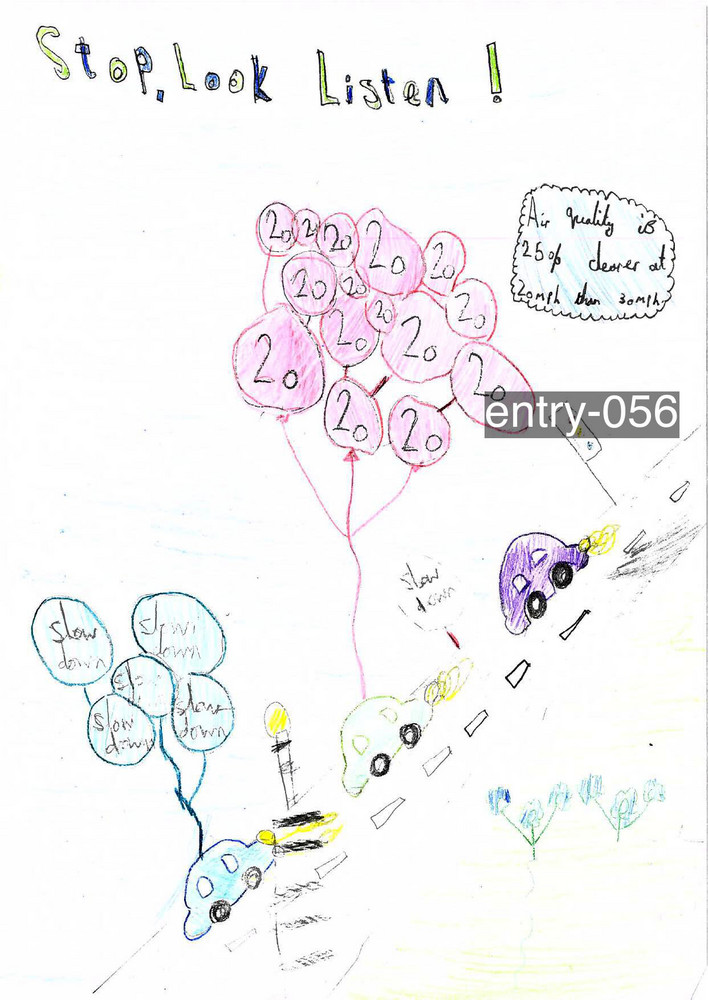 Stop, Look Listen !
Air quality is
25%
20mph than 30mph
20
2
20
20
20
20
20
20
20
20
20
20
20
20
20
entry-056
slow
down
slow
down
slow
down
slow
slow
down
slow
down